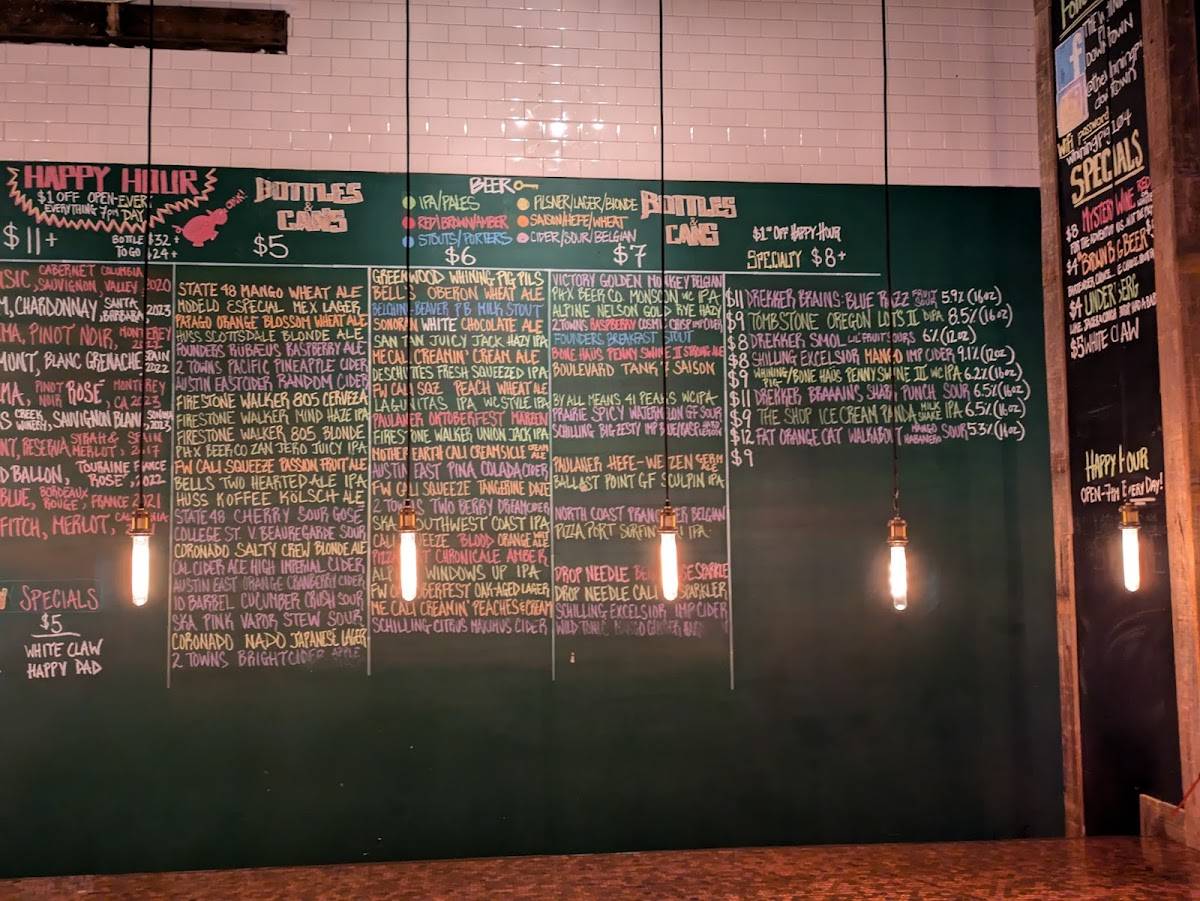 HAPPY HOUR
$1 OFF OPEN-EVERY
EVERYTHING 7PM DAY
$11+
BOTTLE $32+
TO GO $24+
CABERNET COLUMBIA
SAUVIGNON, VALLEY 2020
CHARDONNAY, SANTA BARBARA 2023
PINOT NOIR, MONTEREY
BLANC GRENACHE, SPAIN 2022
PINOT NOIR ROSÉ, MONTEREY CA 2023
CREEK WINERY, SAUVIGNON BLANC, SONOMA 2023
RESERVA SYRAH & MERLOT, SPAIN
BALLON, TOURAINE ROSÉ, FRANCE 2022
BLUE, BORDEAUX ROUGE, FRANCE 2021
FITCH, MERLOT,
SPECIALS
$5
WHITE CLAW
HAPPY DAD
BOTTLES
&
CANS
$5
STATE 48 MANGO WHEAT ALE
MODELO ESPECIAL MEX LAGER
PAPAGO ORANGE BLOSSOM WHEAT ALE
HUSS SCOTTSDALE BLONDE ALE
FOUNDERS RUBAEUS RASPBERRY ALE
2 TOWNS PACIFIC PINEAPPLE CIDER
AUSTIN EASTCIDER RANDOM CIDER
FIRESTONE WALKER 805 CERVEZA
FIRESTONE WALKER MIND HAZE IPA
FIRESTONE WALKER 805 BLONDE
PHX BEER CO ZAN JERO JUICY IPA
FW CALI SQUEEZE PASSION FRUIT ALE
BELLS TWO HEARTED ALE IPA
HUSS KOFFEE KÖLSCH ALE
STATE 48 CHERRY SOUR GOSE
COLLEGE ST. V BEAUREGARDE SOUR
CORONADO SALTY CREW BLONDE ALE
CAL CIDER ACE HIGH IMPERIAL CIDER
AUSTIN EAST ORANGE CRANBERRY CIDER
10 BARREL CUCUMBER CRUSH SOUR
SKA PINK VAPOR STEW SOUR
CORONADO NADO JAPANESE LAGER
2 TOWNS BRIGHTCIDER APPLE
BEER
IPA/PALES
RED/BROWN/AMBER
STOUTS/PORTERS
PILSNER/LAGER/BLONDE
SAISON/HEFE/WHEAT
CIDER/SOUR/BELGIAN
$6
GREENWOOD WHINING PIG PILS
BELL'S OBERON WHEAT ALE
BELCHIN' BEAVER P.B. MILK STOUT
SONORAN WHITE CHOCOLATE ALE
SAN TAN JUICY JACK HAZY IPA
ME CALI CREAMIN' CREAM ALE
DESCHUTES FRESH SQUEEZED IPA
FW CALI SQZ PEACH WHEAT ALE
LAGUNITAS IPA WC STYLE IPA
PAULANER OKTOBERFEST MARZEN
FIRESTONE WALKER UNION JACK IPA
MOTHER EARTH CALI CREAMSICLE
AUSTIN EAST PINA COLADA CIDER
FW CALI SQUEEZE TANGERINE DAZE
2 TOWNS TWO BERRY DREAM CIDER
SKA SOUTHWEST COAST IPA
CALI SQUEEZE BLOOD ORANGE
PIZZA PORT CHRONICALE AMBER
WINDOWS UP IPA
FW OKTOBERFEST OAK-AGED LAGER
ME CALI CREAMIN' PEACHES & CREAM
SCHILLING CITRUS MAXIMUS CIDER
BOTTLES
&
CANS
$7
VICTORY GOLDEN MONKEY BELGIAN
PHX BEER CO. MONSOON WC IPA
ALPINE NELSON GOLD RYE HAZY
2 TOWNS RASPBERRY COSMIC CRISP IMP CIDER
FOUNDERS BREAKFAST STOUT
BONE HAUS PENNY SWINE II STRONG ALE
BOULEVARD TANK 7 SAISON
BY ALL MEANS 41 PEAKS WC IPA
PRAIRIE SPICY WATERMELON GF SOUR
SCHILLING BIG ZESTY IMP
PAULANER HEFE-WEIZEN GERM ALE
BALLAST POINT GF SCULPIN IPA
NORTH COAST PRANQSTER BELGIAN
PIZZA PORT IPA
DROP NEEDLE SPARKLE
DROP NEEDLE CALI SPARKLER
SCHILLING EXCELSIOR IMP CIDER
WILD TONIC
$1 OFF HAPPY HOUR
SPECIALTY $8+
$11 DREKKER BRAINS: BLUE RAZZ 5.9% (16oz)
$9 TOMBSTONE OREGON LOTS II DIPA 8.5% (16oz)
$8 DREKKER SMOL LIL' FRUIT SOURS 6% (12oz)
$8 SCHILLING EXCELSIOR MANGO IMP CIDER 9.1% (12oz)
$9 WHINING PIG/BONE HAUS PENNY SWINE III WC IPA 6.2% (16oz)
$11 DREKKER BRAAAINS SHARK PUNCH SOUR 6.5% (16oz)
$9 THE SHOP ICE CREAM PANDA MILK SHAKE IPA 6.5% (16oz)
$12 FAT ORANGE CAT WALKABOUT MANGO HABANERO SOUR 5.3% (16oz)
$9
DOWNTOWN
@thewhiningpig
downtown
Wifi password
whiningpig104
SPECIALS
$8 MYSTERY WINE RED
$4 BROWN BAG BEER
$4 UNDER JERG
$5 WHITE CLAW
HAPPY HOUR
OPEN-7PM EVERY DAY!